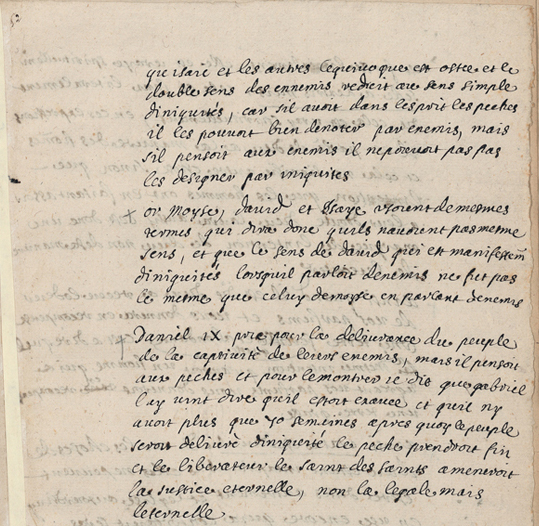 52
que isaïe et les autres lequivoque est ostee et le
double sens des ennemis reduit au sens simple
diniquités, car sil avoit dans lesprit les peches
il les pouvoit bien denoter par enemis, mais
sil pensoit aux enemis il ne pouvoit pas pas
les designer par iniquites
+ or Moyse, david et Isaye usoient de mesmes
termes, qui dira donc quils navoient pas mesme
sens, et que le sens de david qui est manifestem
diniquités lorsquil parloit denemis ne fut pas
le mesme que celuy de moyse en parlant denemis
Daniel IX prie pour la delivrance du peuple
de la captivité de leurs enemis, mais il pensoit
aux peches et pour le montrer ie dis que gabriel
luy vint dire quil estoit exaucé et quil ny
avoit plus que 70 semeines apres quoy le peuple
seroit delivré diniquité le peché prendroit fin
et le liberateur le saint des saints ameneroit
la justice eternelle, non la legale mais
leternelle.